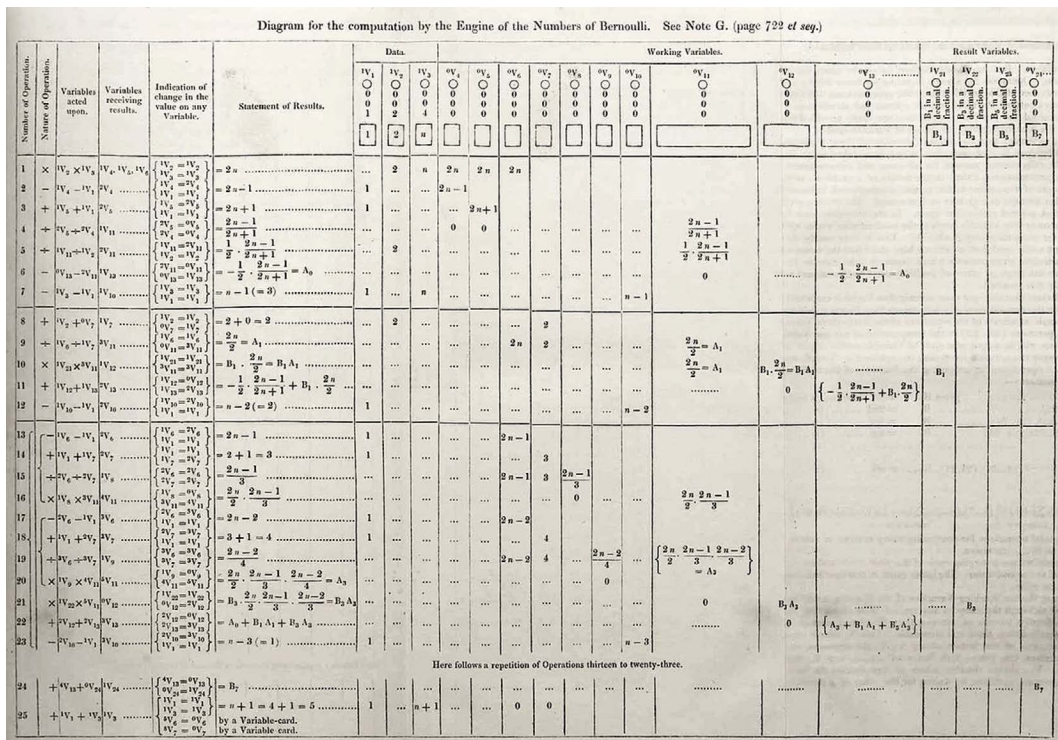 Diagram for the computation by the Engine of the Numbers of Bernoulli. See Note G. (page 722 et seq.)
Number of Operation.
Nature of Operation.
Variables acted upon.
Variables receiving results.
Indication of change in the value on any Variable.
Statement of Results.
Data.
Working Variables.
Result Variables.
¹V₁ ¹V₂ ¹V₃ ⁰V₄ ⁰V₅ ⁰V₆ ⁰V₇ ⁰V₈ ⁰V₉ ⁰V₁₀ ⁰V₁₁ ⁰V₁₂ ⁰V₁₃ ............ ¹V₂₁ ¹V₂₂ ¹V₂₃ ⁰V₂₄......
○ ○ ○ ○ ○ ○ ○ ○ ○ ○ ○ ○ ○ ○ ○ ○ ○
0 0 0 0 0 0 0 0 0 0 0 0 0 B₁ in a decimal fraction. B₃ in a decimal fraction. B₅ in a decimal fraction. 0
0 0 0 0 0 0 0 0 0 0 0 0 0 0
1 2 4 0 0 0 0 0 0 0 0 0 0 0
1 2 n B₁ B₃ B₅ B₇
1 × ¹V₂ × ¹V₃ ¹V₄, ¹V₅, ¹V₆ {¹V₂ = ¹V₂ ¹V₃ = ¹V₃} = 2n ... 2 n 2n 2n 2n
2 − ¹V₄ − ¹V₁ ²V₄ ......... {¹V₄ = ²V₄ ¹V₁ = ¹V₁} = 2n − 1 1 ... ... 2n − 1
3 + ¹V₅ + ¹V₁ ²V₅ ......... {¹V₅ = ²V₅ ¹V₁ = ¹V₁} = 2n + 1 1 ... ... ... 2n + 1
4 ÷ ²V₅ ÷ ²V₄ ¹V₁₁ ......... {²V₅ = ⁰V₅ ²V₄ = ⁰V₄} = (2n − 1)/(2n + 1) ... ... ... 0 0 ... ... ... ... ... (2n − 1)/(2n + 1)
5 ÷ ¹V₁₁ ÷ ¹V₂ ²V₁₁ ......... {¹V₁₁ = ²V₁₁ ¹V₂ = ¹V₂} = 1/2 · (2n − 1)/(2n + 1) ... 2 ... ... ... ... ... ... ... ... 1/2 · (2n − 1)/(2n + 1)
6 − ⁰V₁₃ − ²V₁₁ ¹V₁₃ ......... {²V₁₁ = ⁰V₁₁ ⁰V₁₃ = ¹V₁₃} = − 1/2 · (2n − 1)/(2n + 1) = A₀ ... ... ... ... ... ... ... ... ... ... 0 ......... − 1/2 · (2n − 1)/(2n + 1) = A₀
7 − ¹V₃ − ¹V₁ ¹V₁₀ ......... {¹V₃ = ¹V₃ ¹V₁ = ¹V₁} = n − 1 (= 3) 1 ... n ... ... ... ... ... ... n − 1
8 + ¹V₂ + ⁰V₇ ¹V₇ ......... {¹V₂ = ¹V₂ ⁰V₇ = ¹V₇} = 2 + 0 = 2 ... 2 ... ... ... ... 2
9 ÷ ¹V₆ ÷ ¹V₇ ³V₁₁ ......... {¹V₆ = ¹V₆ ⁰V₁₁ = ³V₁₁} = 2n/2 = A₁ ... ... ... ... ... 2n 2 ... ... ... 2n/2 = A₁
10 × ¹V₂₁ × ³V₁₁ ¹V₁₂ ......... {¹V₂₁ = ¹V₂₁ ³V₁₁ = ³V₁₁} = B₁ · 2n/2 = B₁A₁ ... ... ... ... ... ... ... ... ... ... 2n/2 = A₁ B₁ · 2n/2 = B₁A₁ ......... B₁
11 + ¹V₁₂ + ¹V₁₃ ²V₁₃ ......... {¹V₁₂ = ⁰V₁₂ ¹V₁₃ = ²V₁₃} = − 1/2 · (2n − 1)/(2n + 1) + B₁ · 2n/2 ... ... ... ... ... ... ... ... ... ... ......... 0 {− 1/2 · (2n − 1)/(2n + 1) + B₁ · 2n/2}
12 − ¹V₁₀ − ¹V₁ ²V₁₀ ......... {¹V₁₀ = ²V₁₀ ¹V₁ = ¹V₁} = n − 2 (= 2) 1 ... ... ... ... ... ... ... ... n − 2
13 − ¹V₆ − ¹V₁ ²V₆ ......... {¹V₆ = ²V₆ ¹V₁ = ¹V₁} = 2n − 1 1 ... ... ... ... 2n − 1
14 + ¹V₁ + ¹V₇ ²V₇ ......... {¹V₁ = ¹V₁ ¹V₇ = ²V₇} = 2 + 1 = 3 1 ... ... ... ... ... 3
15 ÷ ²V₆ ÷ ²V₇ ¹V₈ ......... {²V₆ = ²V₆ ²V₇ = ²V₇} = (2n − 1)/3 ... ... ... ... ... 2n − 1 3 (2n − 1)/3
16 × ¹V₈ × ³V₁₁ ⁴V₁₁ ......... {¹V₈ = ⁰V₈ ³V₁₁ = ⁴V₁₁} = 2n/2 · (2n − 1)/3 ... ... ... ... ... ... ... 0 ... ... 2n/2 · (2n − 1)/3
17 − ²V₆ − ¹V₁ ³V₆ ......... {²V₆ = ³V₆ ¹V₁ = ¹V₁} = 2n − 2 1 ... ... ... ... 2n − 2
18 + ¹V₁ + ²V₇ ³V₇ ......... {²V₇ = ³V₇ ¹V₁ = ¹V₁} = 3 + 1 = 4 1 ... ... ... ... ... 4
19 ÷ ³V₆ ÷ ³V₇ ¹V₉ ......... {³V₆ = ³V₆ ³V₇ = ³V₇} = (2n − 2)/4 ... ... ... ... ... 2n − 2 4 ... (2n − 2)/4 ... {2n/2 · (2n − 1)/3 · (2n − 2)/3} = A₃
20 × ¹V₉ × ⁴V₁₁ ⁵V₁₁ ......... {¹V₉ = ⁰V₉ ⁴V₁₁ = ⁵V₁₁} = 2n/2 · (2n − 1)/3 · (2n − 2)/4 = A₃ ... ... ... ... ... ... ... ... 0
21 × ¹V₂₂ × ⁵V₁₁ ⁰V₁₂ ......... {¹V₂₂ = ¹V₂₂ ⁰V₁₂ = ²V₁₂} = B₃ · 2n/2 · (2n − 1)/3 · (2n − 2)/3 = B₃A₃ ... ... ... ... ... ... ... ... ... ... 0 B₃A₃ ......... ...... B₃
22 + ²V₁₂ + ²V₁₃ ³V₁₃ ......... {²V₁₂ = ⁰V₁₂ ²V₁₃ = ³V₁₃} = A₀ + B₁A₁ + B₃A₃ ... ... ... ... ... ... ... ... ... ... ......... 0 {A₃ + B₁A₁ + B₃A₃}
23 − ²V₁₀ − ¹V₁ ³V₁₀ ......... {²V₁₀ = ³V₁₀ ¹V₁ = ¹V₁} = n − 3 (= 1) 1 ... ... ... ... ... ... ... ... n − 3
Here follows a repetition of Operations thirteen to twenty-three.
24 + ⁴V₁₃ + ⁰V₂₄ ¹V₂₄ ......... {⁴V₁₃ = ⁰V₁₃ ⁰V₂₄ = ¹V₂₄} = B₇ ... ... ... ... ... ... ... ... ... ... ......... ...... ......... ...... ...... ...... B₇
25 + ¹V₁ + ¹V₃ ¹V₃ ......... {¹V₁ = ¹V₁ ¹V₃ = ¹V₃ ⁵V₆ = ⁰V₆ ⁵V₇ = ⁰V₇} = n + 1 = 4 + 1 = 5 1 ... n + 1 ... ... 0 0
by a Variable-card.
by a Variable card.